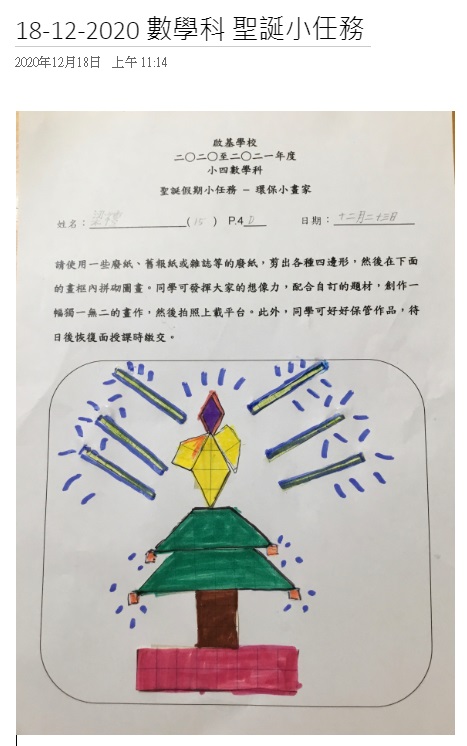 18-12-2020 數學科 聖誕小任務
2020年12月18日 上午 11:14
啟基學校
二〇二〇至二〇二一年度
小四數學科
聖誕假期小任務 – 環保小畫家
姓名：梁 (15) P.4 D 日期：十二月二十三日
請使用一些廢紙、舊報紙或雜誌等的廢紙，剪出各種四邊形，然後在下面
的畫框內拼砌圖畫。同學可發揮大家的想像力，配合自訂的題材，創作一
幅獨一無二的畫作，然後拍照上載平台。此外，同學可好好保管作品，待
日後恢復面授課時繳交。